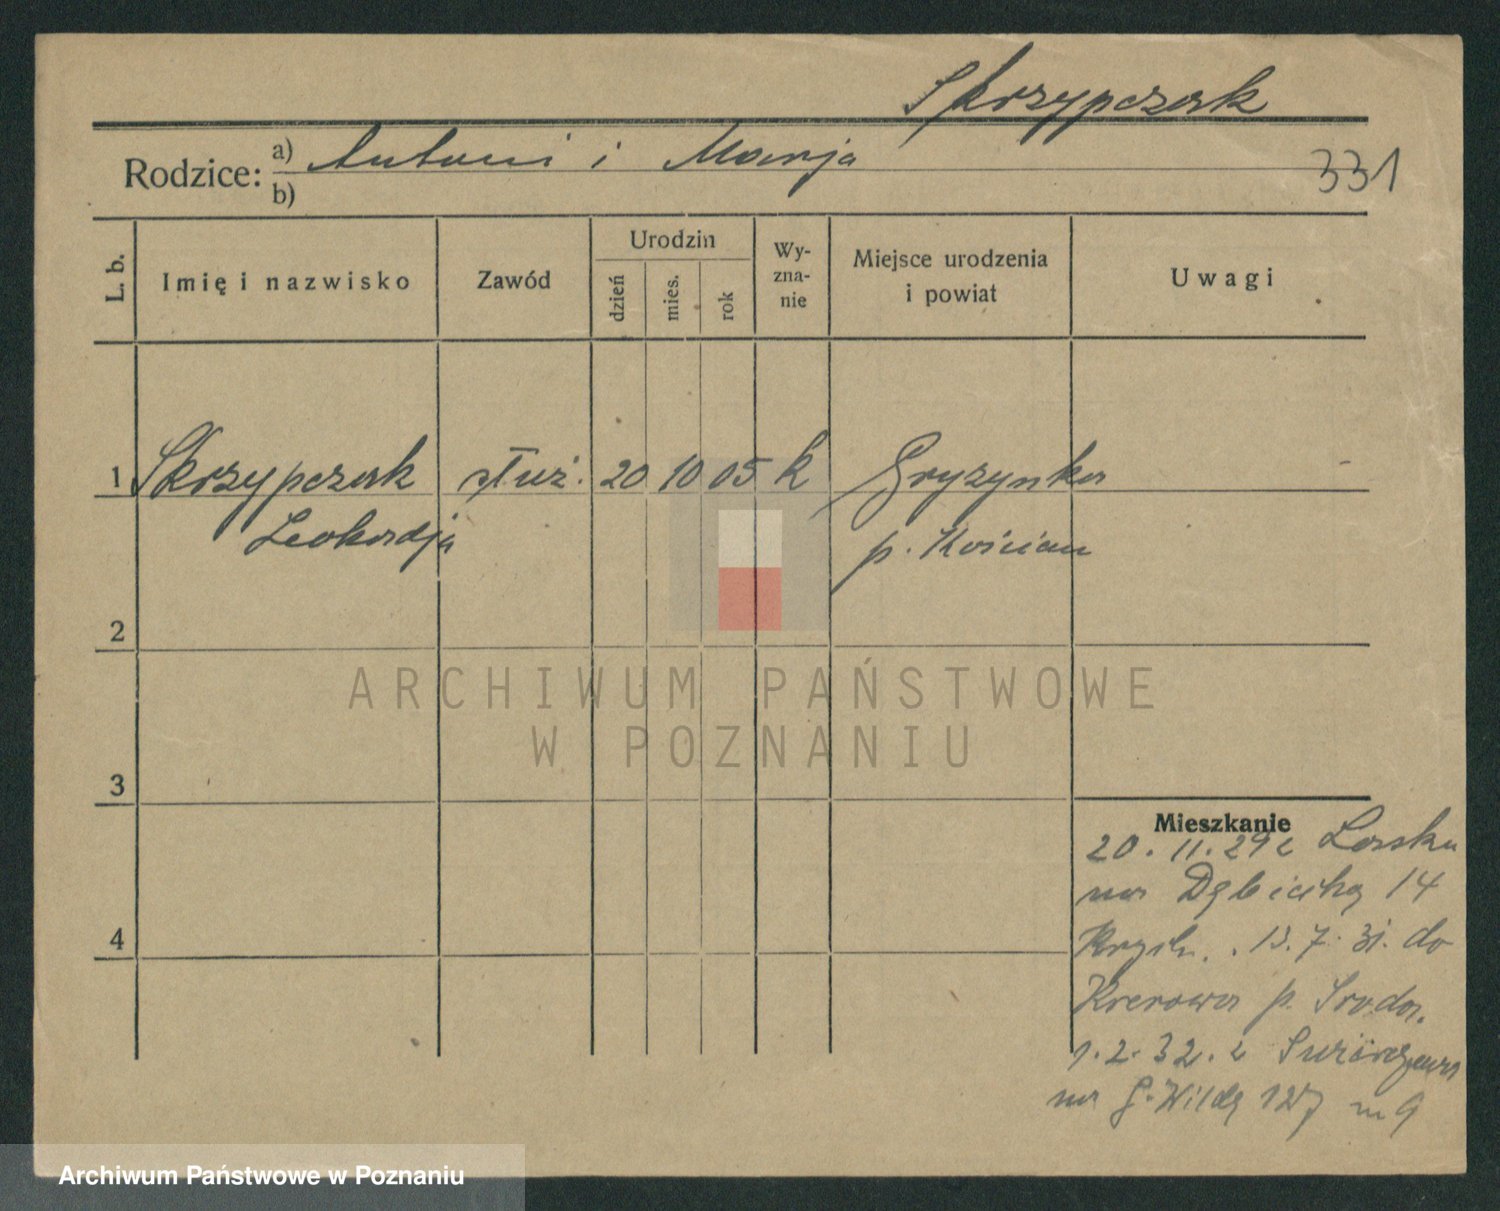 Skrzypczak
Rodzice: a) Antoni i Marja
331
b)
L. b.
Imię i nazwisko
Zawód
Urodzin
dzień
mies.
rok
Wy-
zna-
nie
Miejsce urodzenia
i powiat
Uwagi
1 Skrzypczak służ. 20 10 05 k Gryzynka
Leokadja p. Kościan
2
3
4
Mieszkanie
20. 11. 29 z Lasku
na Dębicką 14
13. 7. 31. do
Krerowa p. Środa.
1. 2. 32. z
na G. Wildę 127 m 9
ARCHIWUM PAŃSTWOWE
W POZNANIU
Archiwum Państwowe w Poznaniu